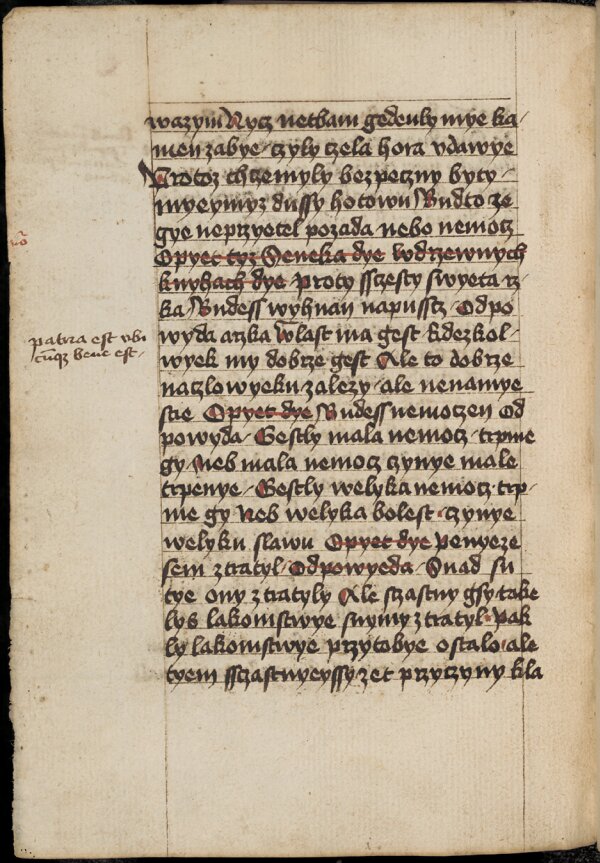 wazym Nycz netbam gedenly mye ka/
men zabye czyly czela hora vdawye
Protoz chczemyly bezpeczny byty
myeymyz dussy hotowu Budto ze
gye neprzyetel pozada nebo nemocz
Opyet tyz Seneka dye wdrzewnych
knyhach dye Proty ssczesty swyeta rz
ka Budess wyhnan napusscz Odpo
wyda arzka wlast ma gest kdezkol
wyek my dobrze gest Ale to dobrze
naczlowyeku zalezy ale nenamye
stie Opyet dye Budess nemoczen Od
powyda Gestly mala nemocz trpme
gy Neb mala nemocz czynye male
trpenye Gestly welyka nemocz trp
me gy Neb welyka bolest czynye
welyku slawu Opyet dye Penyeze
sem ztratyl Odpowyeda Snad su
tye ony ztratyly Ale sczastny gsy take
lys lakomstwye snymy ztratyl Pak
ly lakomstwye przytobye ostalo ale
tyem ssczastnyeyssy zet przyczyny kla
patria est vbi
cumqz bene est